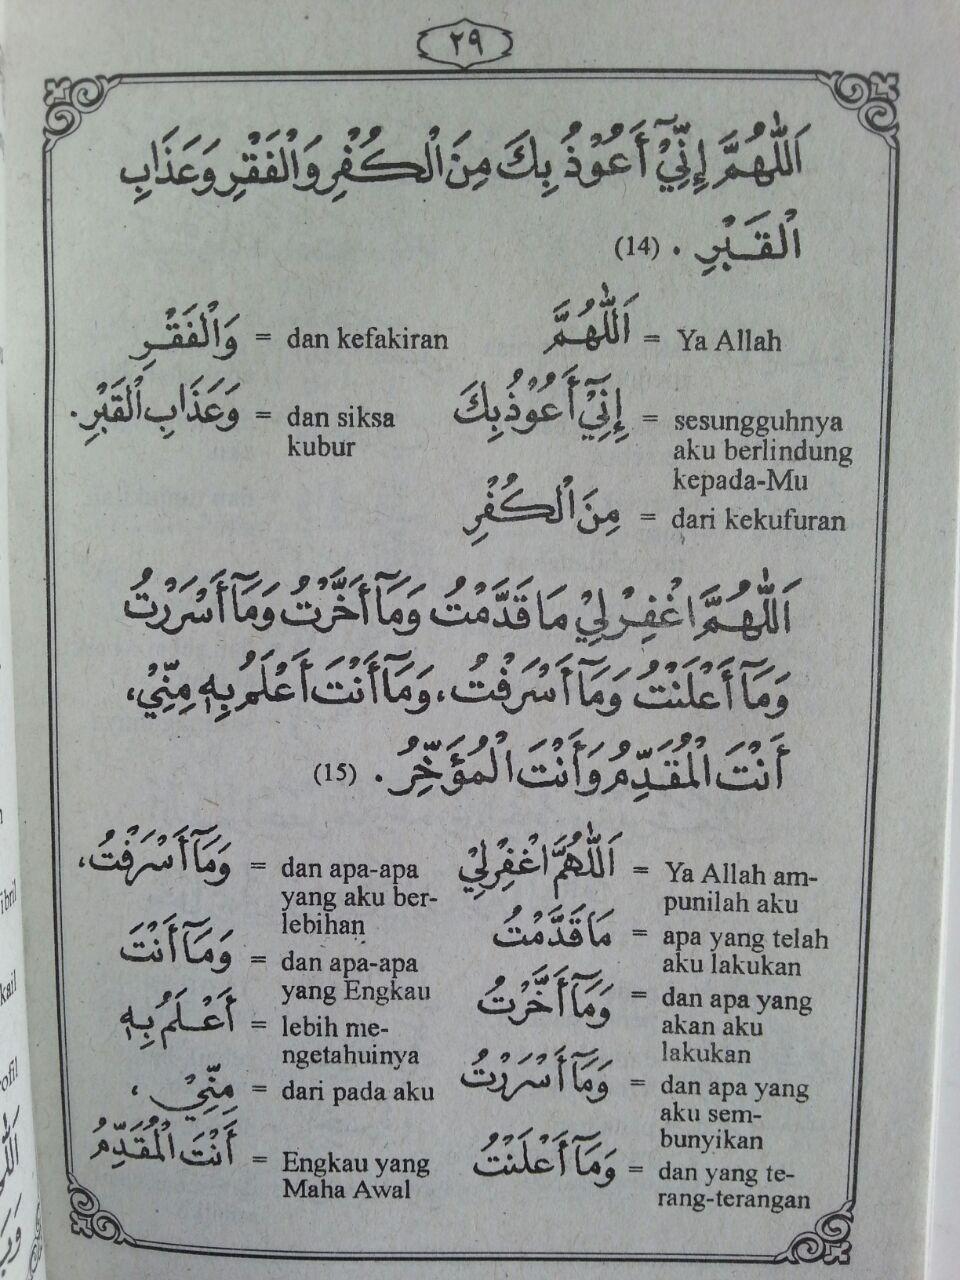 ٢٩
اَللّٰهُمَّ إِنِّيْٓ أَعُوْذُ بِكَ مِنَ الْكُفْرِ وَالْفَقْرِ وَعَذَابِ
الْقَبْرِ . (14)
اَللّٰهُمَّ = Ya Allah
إِنِّيْٓ أَعُوْذُ بِكَ = sesungguhnya
aku berlindung
kepada-Mu
مِنَ الْكُفْرِ = dari kekufuran
وَالْفَقْرِ = dan kefakiran
وَعَذَابِ الْقَبْرِ . = dan siksa
kubur
اَللّٰهُمَّ اغْفِرْ لِيْ مَا قَدَّمْتُ وَمَآ أَخَّرْتُ وَمَآ أَسْرَرْتُ
وَمَآ أَعْلَنْتُ وَمَآ أَسْرَفْتُ، وَمَآ أَنْتَ أَعْلَمُ بِهٖ مِنِّيْ،
أَنْتَ الْمُقَدِّمُ وَأَنْتَ الْمُؤَخِّرُ . (15)
اَللّٰهُمَّ اغْفِرْ لِيْ = Ya Allah am-
punilah aku
مَا قَدَّمْتُ = apa yang telah
aku lakukan
وَمَآ أَخَّرْتُ = dan apa yang
akan aku
lakukan
وَمَآ أَسْرَرْتُ = dan apa yang
aku sem-
bunyikan
وَمَآ أَعْلَنْتُ = dan yang te-
rang-terangan
وَمَآ أَسْرَفْتُ، = dan apa-apa
yang aku ber-
lebihan
وَمَآ أَنْتَ = dan apa-apa
yang Engkau
أَعْلَمُ بِهٖ = lebih me-
ngetahuinya
مِنِّيْ ، = dari pada aku
أَنْتَ الْمُقَدِّمُ = Engkau yang
Maha Awal